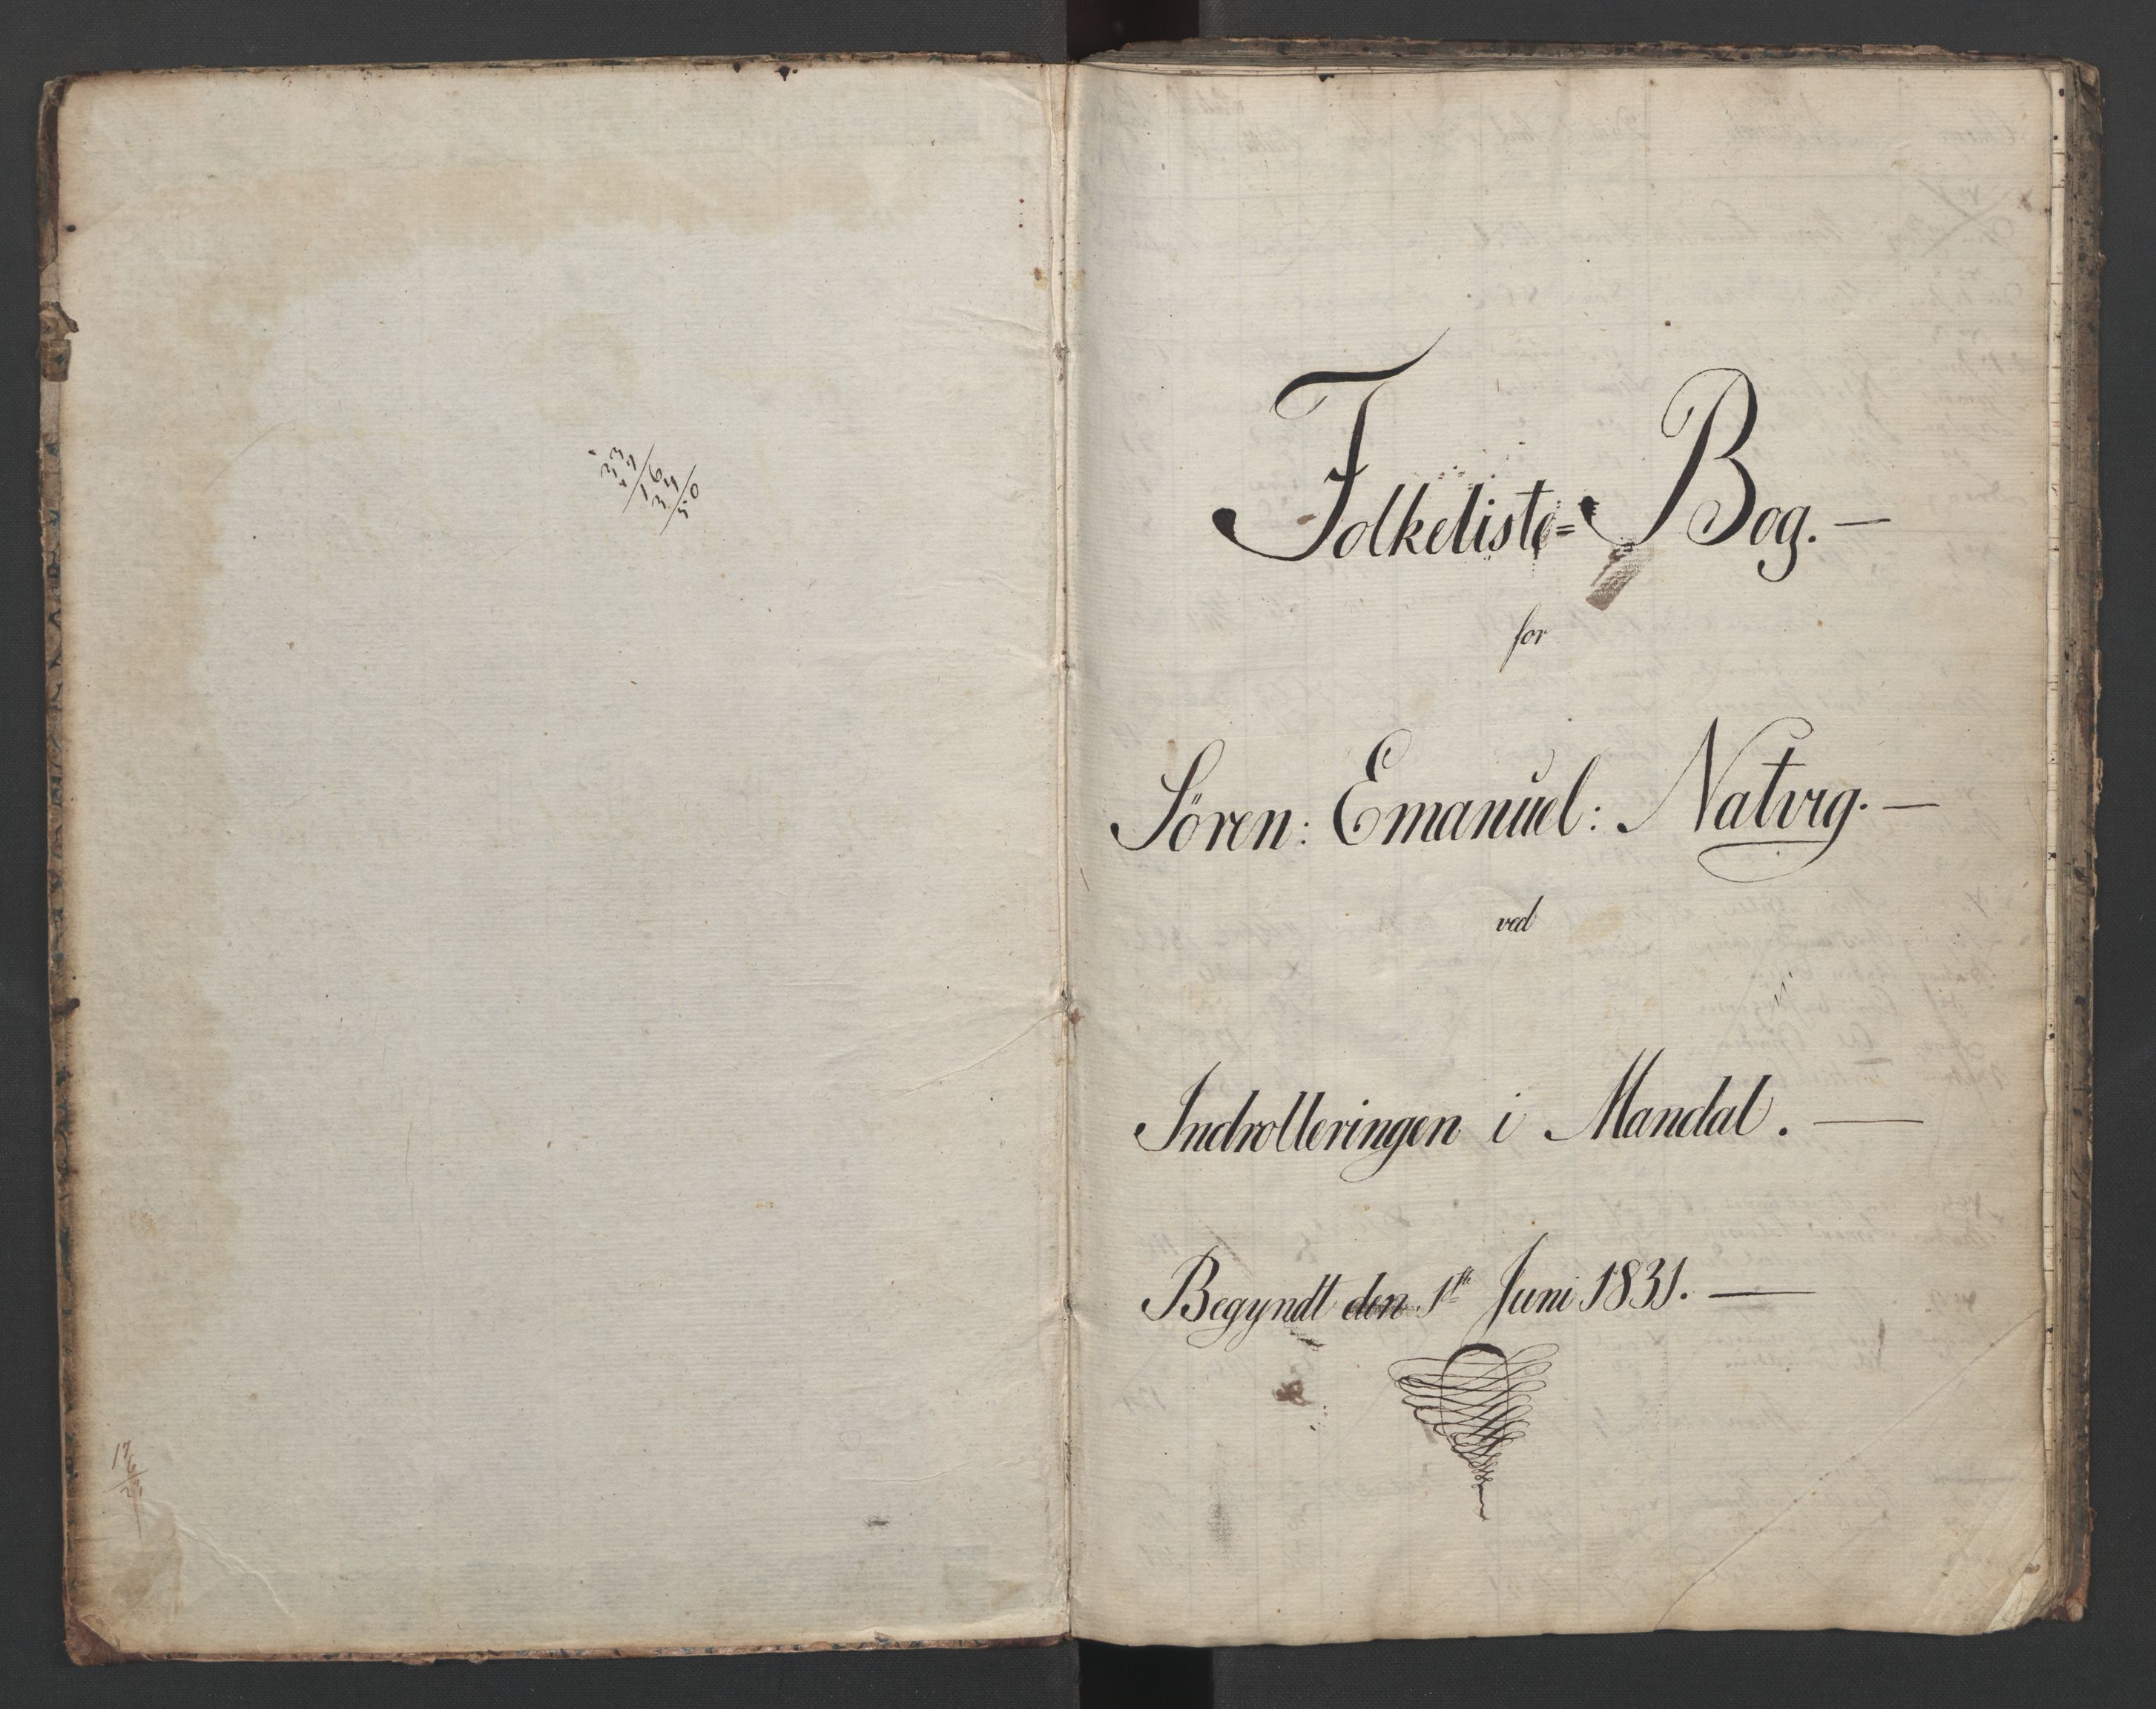 Folkeliste= Bog. —
for
Sören: Emanuel: Natvig. —
ved
Indrolleringen i Mandal. —
Begyndt den 1ste Juni 1831. —